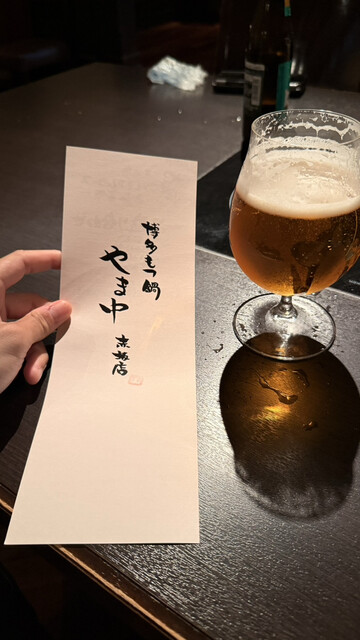 博多もつ鍋
やま中
赤坂店